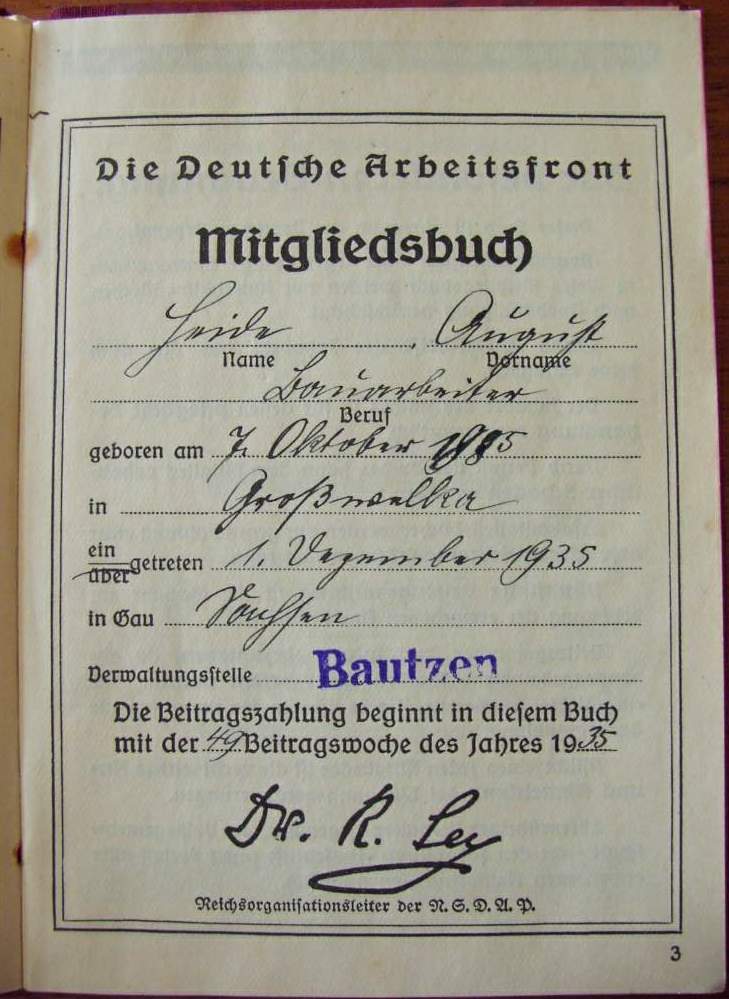 Die Deutsche Arbeitsfront
Mitgliedsbuch
Heide August
Name Vorname
Bauarbeiter
Beruf
geboren am 7. Oktober
in Großwelka
ein
über getreten 1. Dezember 1935
in Gau Sachsen
Verwaltungsstelle Bautzen
Die Beitragszahlung beginnt in diesem Buch
mit der 49 Beitragswoche des Jahres 1935
Dr. R. Ley
Reichsorganisationsleiter der N. S. D. A. P.
3